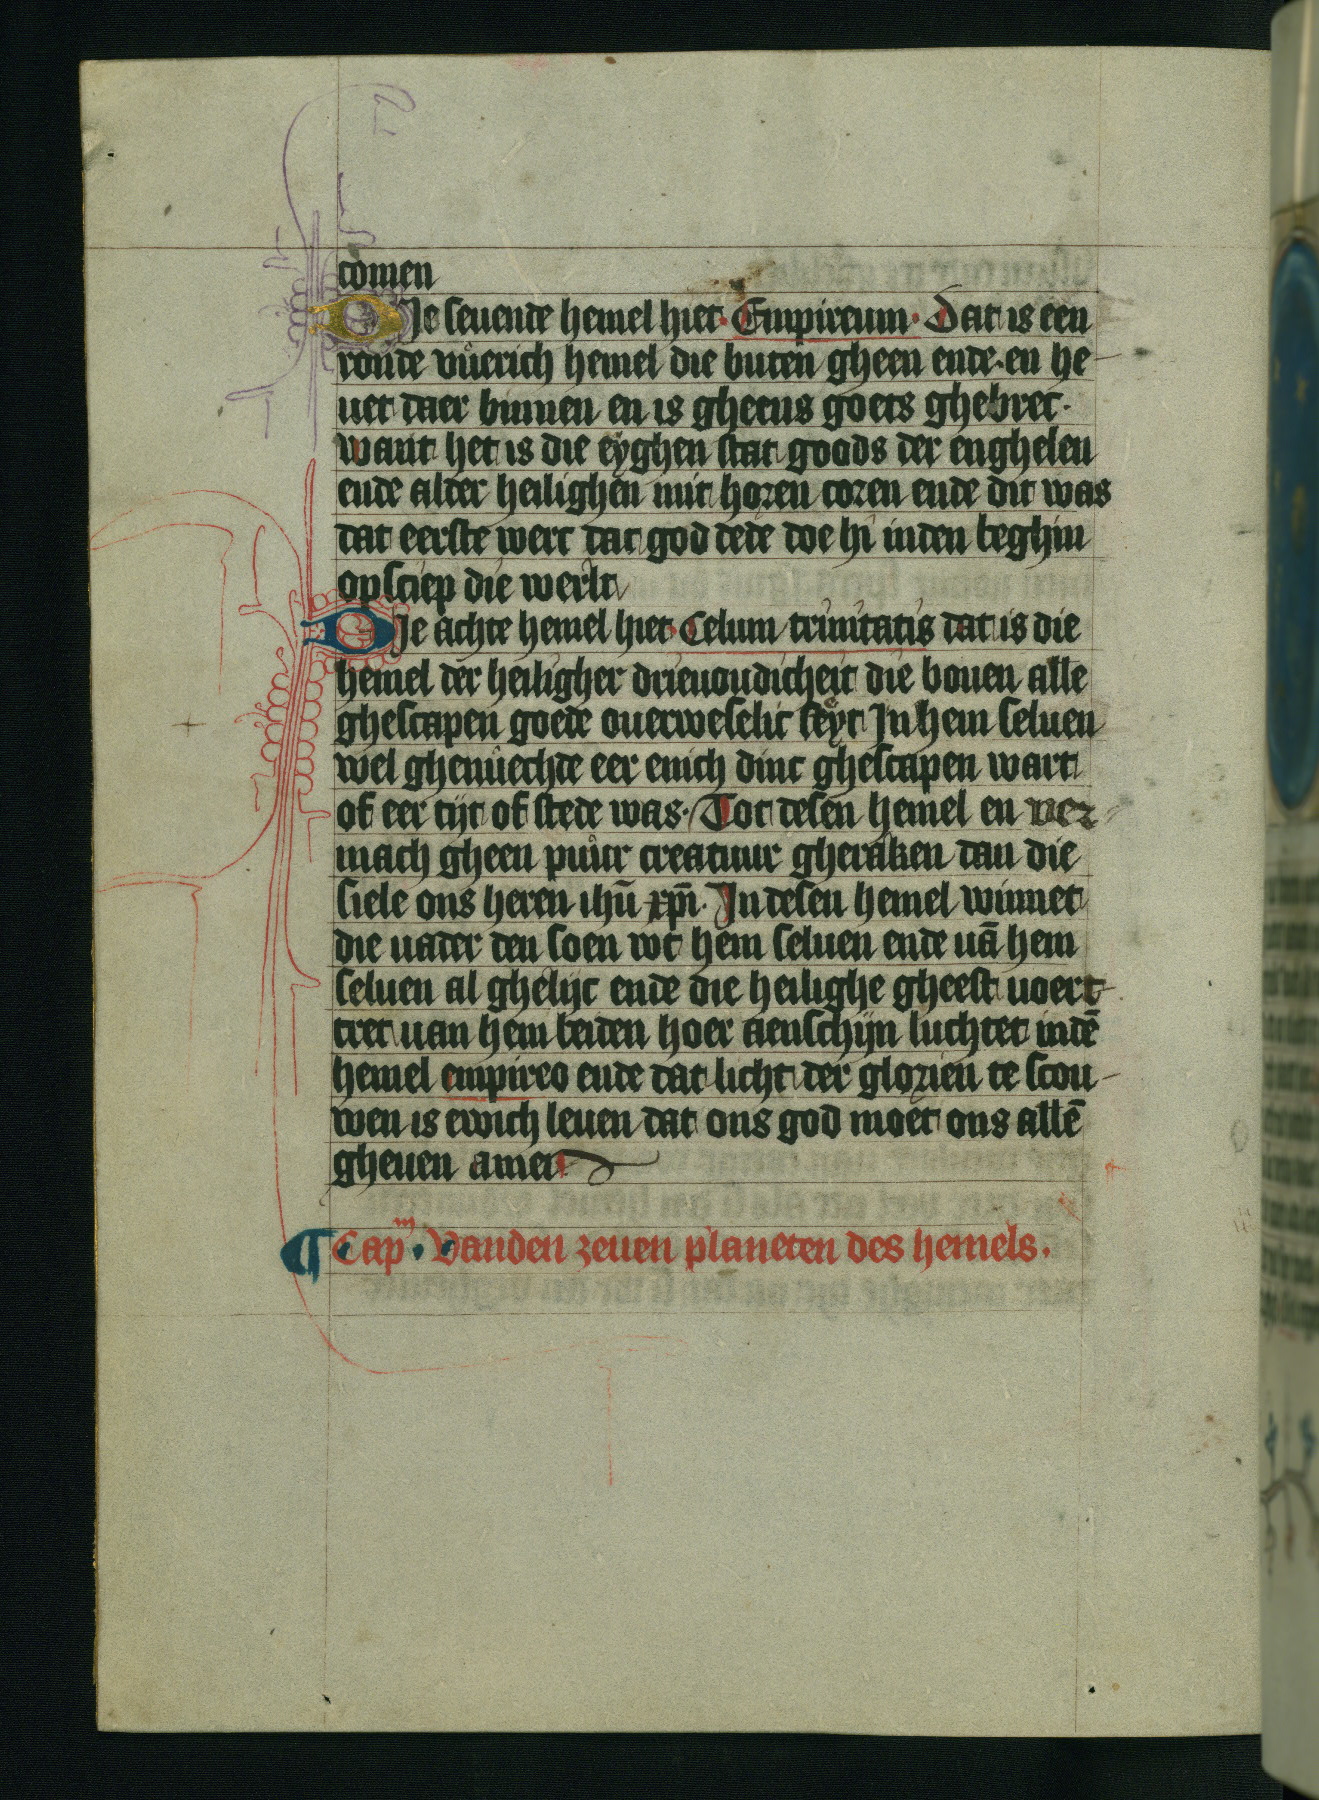 comen
DJe seuende hemel hiet Empireum. Dat is een
ronde vuerich hemel die buten gheen ende en he
uet daer binnen en is ghetus goets ghebrec.
want het is die eyghen stat goods der enghelen
ende alder heilighen mit horen coren ende dit was
dat eerste werc dat god dede doe hi inden beghin
op sciep die werlt
DJe achte hemel hiet Celum trinitatis dat is die
hemel der heiligher drieuoudicheit die bouen alle
ghescapen goede ouerweselic seyt Jn hem seluen
wel ghenuechde eer enich dinc ghescapen wart
of eer tijt of stede was. Tot desen hemel en ver
mach gheen puur creatuur gheraken dan die
siele ons heren ihū xpī. Jn desen hemel winnet
die uader den soen wt hem seluen ende uā hem
seluen al ghelijc ende die heilighe gheest uoert
tret uan hem beiden hoer aenschijn luchtet indē
hemel empireo ende dat licht der glorien te scou
wen is ewich leuen dat ons god moet ons allē
gheuen amen
¶ Capᵐ. Vanden zeuen planeten des hemels.